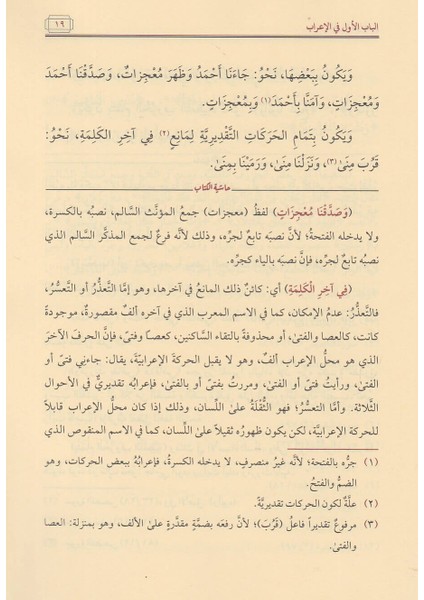 الباب الأول في الإعراب
١٩
وَيَكُونُ بِبَعْضِهَا، نَحْوُ: جَاءَنَا أَحْمَدُ وَظَهَرَ مُعْجِزَاتٌ، وَصَدَّقْنَا أَحْمَدَ
وَمُعْجِزَاتٍ، وَآمَنَّا بِأَحْمَدَ(١) وَبِمُعْجِزَاتٍ.
وَيَكُونُ بِتَمَامِ الحَرَكَاتِ التَّقْدِيرِيَّةِ لِمَانِعٍ(٢) فِي آخِرِ الكَلِمَةِ، نَحْوُ:
قَرُبَ مِنىٰ(٣)، وَنَزَلْنَا مِنىٰ، وَرَمَيْنَا بِمِنىٰ.
حاشية الكتاب
(وَصَدَّقْنَا مُعْجِزَاتٍ) لفظُ (معجزات) جمعُ المؤنَّث السَّالم، نصبُه بالكسرة،
ولا يدخله الفتحةُ؛ لأنَّ نصبَه تابع لجرِّه، وذلك لأنَّه فرعٌ لجمع المذكَّر السَّالم الذي
نصبُه تابعٌ لجرِّه، فإنَّ نصبَه بالياء كجرِّه.
(فِي آخِرِ الْكَلِمَةِ) أي: كائنٌ ذلك المانعُ في آخرها، وهو إمَّا التَّعذُّرُ أو التَّعسُّرُ،
فالتَّعذُّرُ: عدمُ الإمكان، كما في الاسم المعرب الذي في آخره ألفٌ مقصورةٌ، موجودةً
كانت، كالعصا والفتىٰ، أو محذوفةً بالتقاء السَّاكنين، كعصاً وفتىً، فإنَّ الحرفَ الآخرَ
الذي هو محلُّ الإعراب ألفٌ، وهو لا يقبل الحركةَ الإعرابيَّةَ، يقال: جاءني فتىً أو
الفتىٰ، ورأيتُ فتىً أو الفتىٰ، ومررتُ بفتىً أو بالفتىٰ، فإعرابُه تقديريٌّ في الأحوال
الثَّلاثة. وأمَّا التعسُّرُ: فهو الثُّقْلَةُ علىٰ اللِّسان، وذلك إذا كان محلُّ الإعراب قابلاً
للحركة الإعرابيَّة، لكن يكون ظهورُه ثقيلاً علىٰ اللِّسان، كما في الاسم المنقوص الذي
(١) جرُّه بالفتحة؛ لأنَّه غيرُ منصرفٍ، لا يدخله الكسرةُ، فإعرابُهُ ببعض الحركات، وهو
الضمُّ والفتحُ.
(٢) علَّةٌ لكون الحركات تقديريَّةً.
(٣) مرفوعٌ تقديراً فاعلُ (قَرُبَ)؛ لأنَّ رفعَه بضمَّةٍ مقدَّرةٍ علىٰ الألف، وهو بمنزلة: العصا
والفتىٰ.